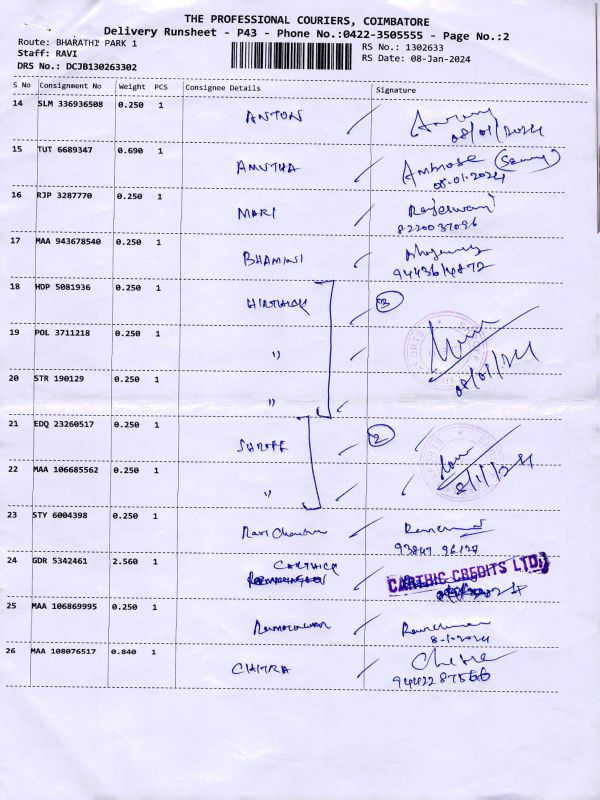 THE PROFESSIONAL COURIERS, COIMBATORE
Delivery Runsheet - P43 - Phone No.:0422-3505555 - Page No.:2
Route: BHARATHI PARK 1
RS No.: 1302633
Staff: RAVI
RS Date: 08-Jan-2024
DRS No.: DCJB130263302
S No Consignment No Weight PCS Consignee Details Signature
14 SLM 336936508 0.250 1 ANTON
08/01/2024
15 TUT 6689347 0.690 1 AMUTHA Ambrose
08.01.2024
16 RJP 3287770 0.250 1 MARI Rajeswari
8220037096
17 MAA 943678540 0.250 1 BHAMINI
18 HDP 5081936 0.250 1 3
19 POL 3711218 0.250 1 "
08/01/24
20 STR 190129 0.250 1 "
21 EDQ 23260517 0.250 1 SHROFF 2
22 MAA 106685562 0.250 1 "
8/1/24
23 STY 6004398 0.250 1 Ravi
24 GDR 5342461 2.560 1 CARTHICK CARTHIC CREDITS LTD.
25 MAA 106869995 0.250 1
8-1-2024
26 MAA 108076517 0.840 1 CHITRA
9442287566